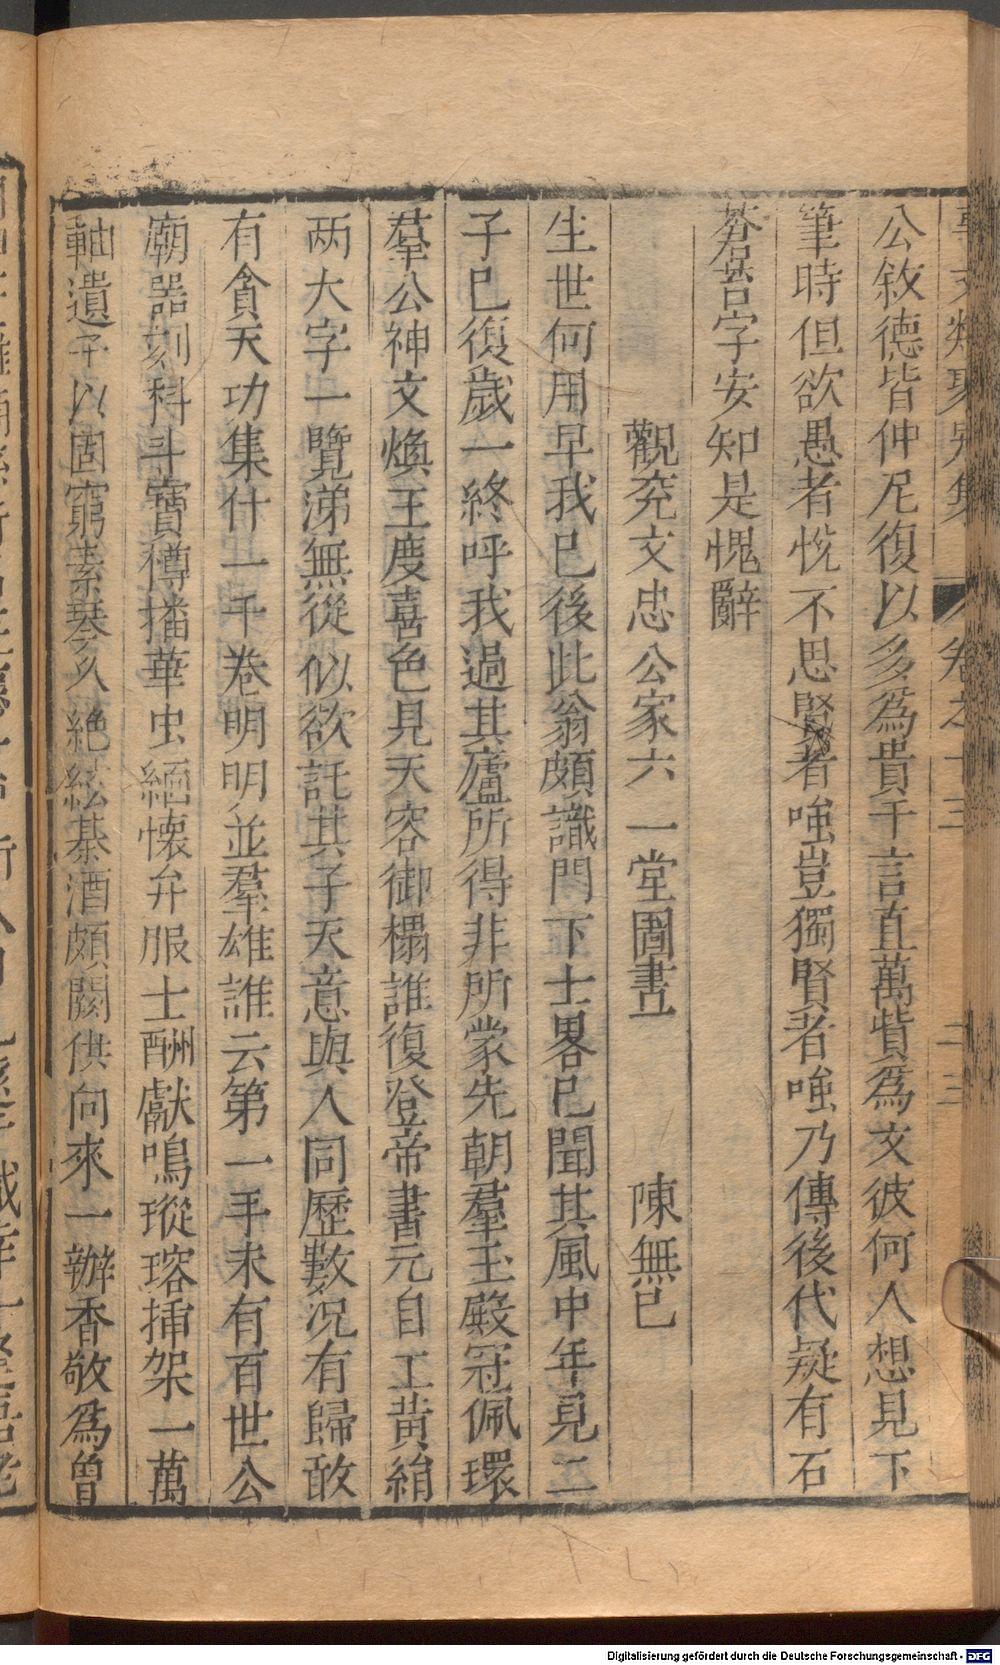 公敘德皆仲尼復以多為貴千言直萬貲為文彼何人想見下
筆時但欲愚者悅不思賢者嗤豈獨賢者嗤乃傳後代疑有石
若言字安知是愧辭
觀兖文忠公家六一堂圖書 陳無已
生世何用早我已後此翁頗識門下士畧已聞其風中年見二
子已復歲一終呼我過其廬所得非所蒙先朝羣玉殿冠佩環
羣公神文煥王度喜色見天容御榻誰復登帝書元自工黄絹
两大字一覽涕無從似欲託其子天意與人同歷數况有歸敢
有貪天功集什一千卷明明並羣雄誰云第一手未有百世公
廟器刻科斗寳樽播華虫緬懷弁服士酬獻鳴瑽瑢揷架一萬
軸遺子以固窮素琴久絶絃棊酒頗闕供向來一瓣香敬為曽
卷之十三
Digitalisierung gefördert durch die Deutsche Forschungsgemeinschaft - DFG